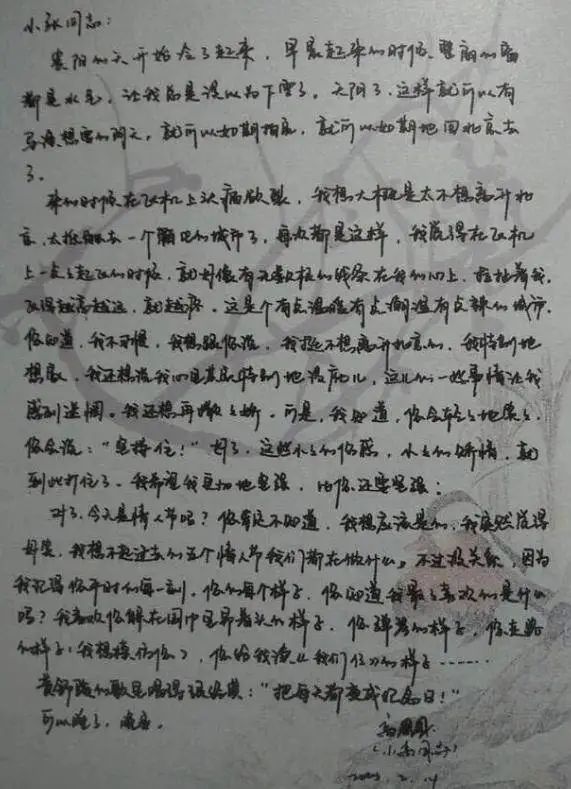 小永同志:
贵阳的天开始冷了起来，早晨起来的时候，里面的窗
都是水气，让我总是误以为下雪了，天阴了，这样就可以有
想要的阴天，就可以如期拍戏，就可以如期地回北京去
了。
来的时候在飞机上头痛欲裂，我想大概是太不想离开北
京，去一个的城市了，每次都是这样，我觉得在飞机
上一点点起飞的时候，就好像有无数根的线系在我的心上，拉扯着我，
飞得越高越远，就越疼。这是个有点温暖有点潮湿有点辣的城市，
你知道，我不习惯，我想跟你说，我挺不想离开北京的，我特别地
想家，我还想说我的这儿，这儿的一些事情让我
感到迷惘。我还想再撒撒娇。可是，我知道，你会轻轻地笑笑，
你会说：“坚持住！”好了，这些小小的伤感，小小的矫情，就
到此打住了。我希望我更加地坚强，比你还要坚强；
对了，今天是情人节吗？你肯定不知道，我想应该是的，我突然觉得
好笑，我想不起过去的五个情人节我们都在做什么。不过没关系，因为
我记得你平时的每一刻，你的每个样子，你知道我最最喜欢的是什么
吗？我喜欢你躲在围巾里昂着头的样子，你弹琴的样子，你走路
的样子（我想模仿你），你给我读《我们仨》的样子……
黄舒骏的歌里唱得很好嘛：“把每天都变成纪念日！”
可以睡了，晚安。
高圆圆
（小高同志）
2.14